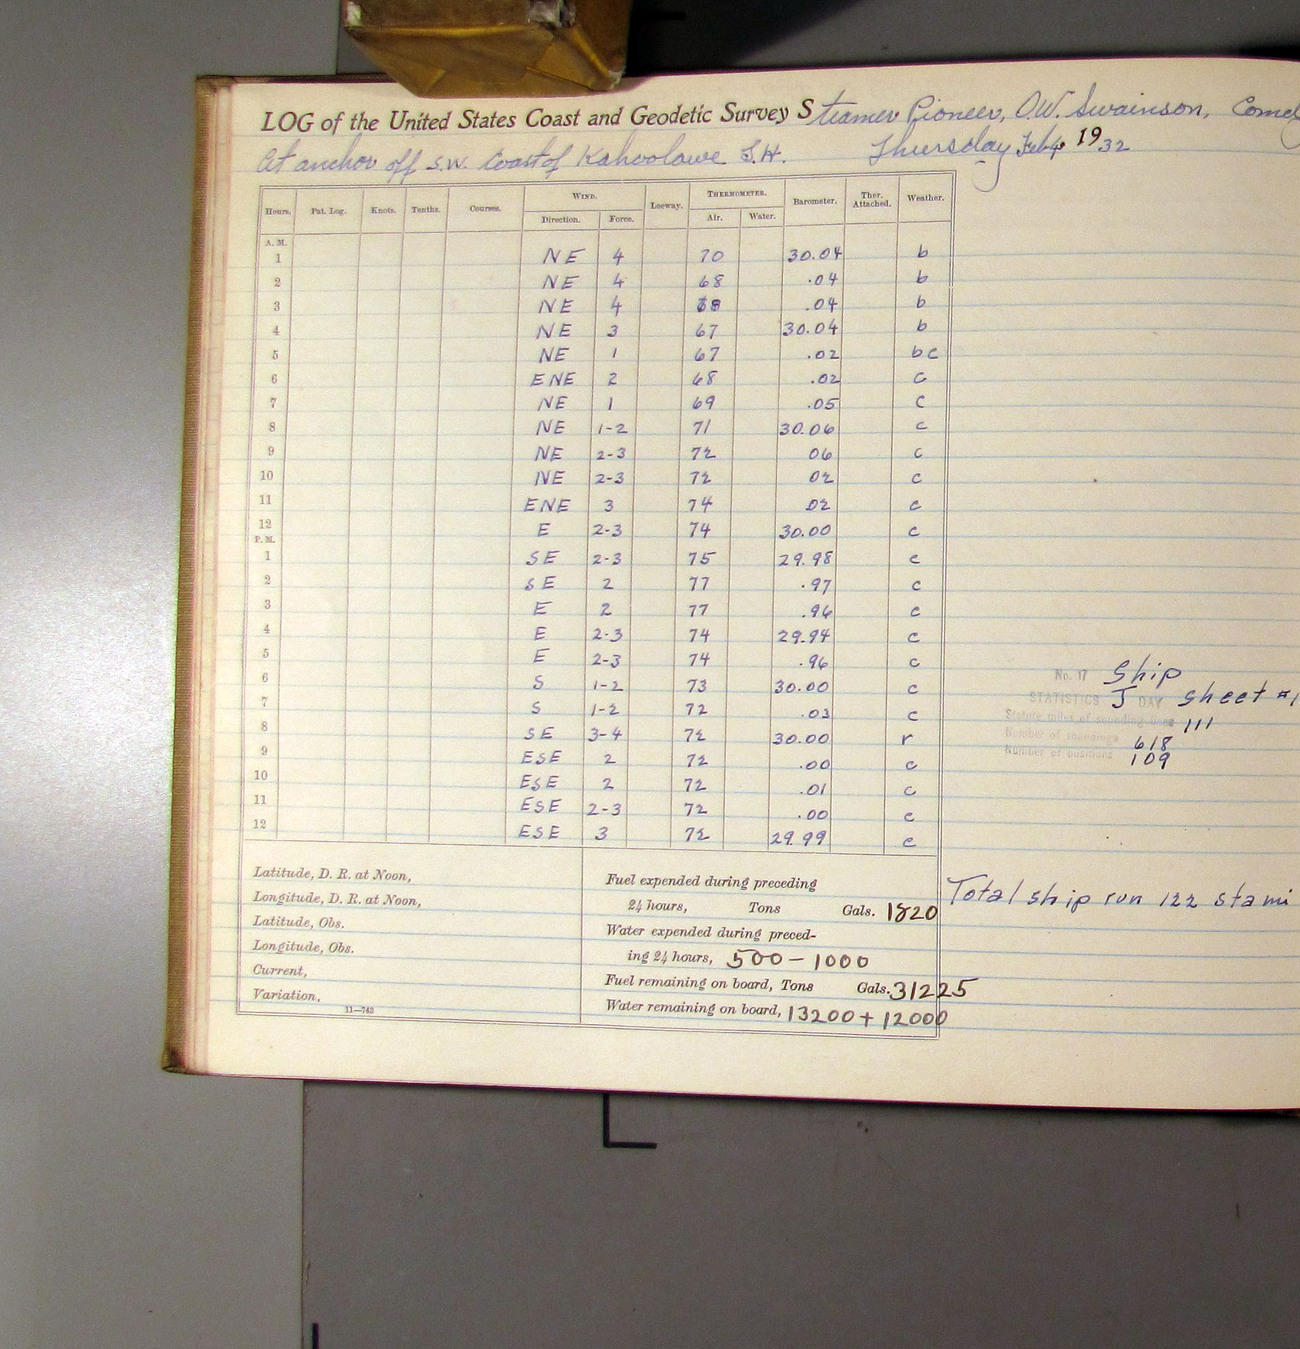 LOG of the United States Coast and Geodetic Survey Steamer Pioneer, O.W. Swainson, Comd
At anchor off S.W. Coast of Kahoolawe T.H. Thursday Feb 4 1932
Hours. Pat. Log. Knots. Tenths. Courses. WIND. Leeway. THERMOMETER. Barometer. Ther. Attached. Weather.
Direction. Force. Air. Water.
A. M.
1 NE 4 70 30.04 b
2 NE 4 68 .04 b
3 NE 4 68 .04 b
4 NE 3 67 30.04 b
5 NE 1 67 .02 bc
6 ENE 2 68 .02 c
7 NE 1 69 .05 c
8 NE 1-2 71 30.06 c
9 NE 2-3 72 06 c
10 NE 2-3 72 02 c
11 ENE 3 74 02 c
12 E 2-3 74 30.00 c
P. M.
1 SE 2-3 75 29.98 c
2 SE 2 77 .97 c
3 E 2 77 .96 c
4 E 2-3 74 29.94 c
5 E 2-3 74 .96 c
6 S 1-2 73 30.00 c
7 S 1-2 72 .03 c
8 SE 3-4 72 30.00 r
9 ESE 2 72 .00 c
10 ESE 2 72 .01 c
11 ESE 2-3 72 .00 c
12 ESE 3 72 29.99 c
No. 17 Ship
STATISTICS J DAY Sheet #1
Statute miles of sounding lines 111
Number of soundings 618
Number of positions 109
Latitude, D. R. at Noon,
Longitude, D. R. at Noon,
Latitude, Obs.
Longitude, Obs.
Current,
Variation,
11—743
Fuel expended during preceding
24 hours, Tons Gals. 1820
Water expended during preced-
ing 24 hours, 500-1000
Fuel remaining on board, Tons Gals. 31225
Water remaining on board, 13200+12000
Total ship run 122 sta mi